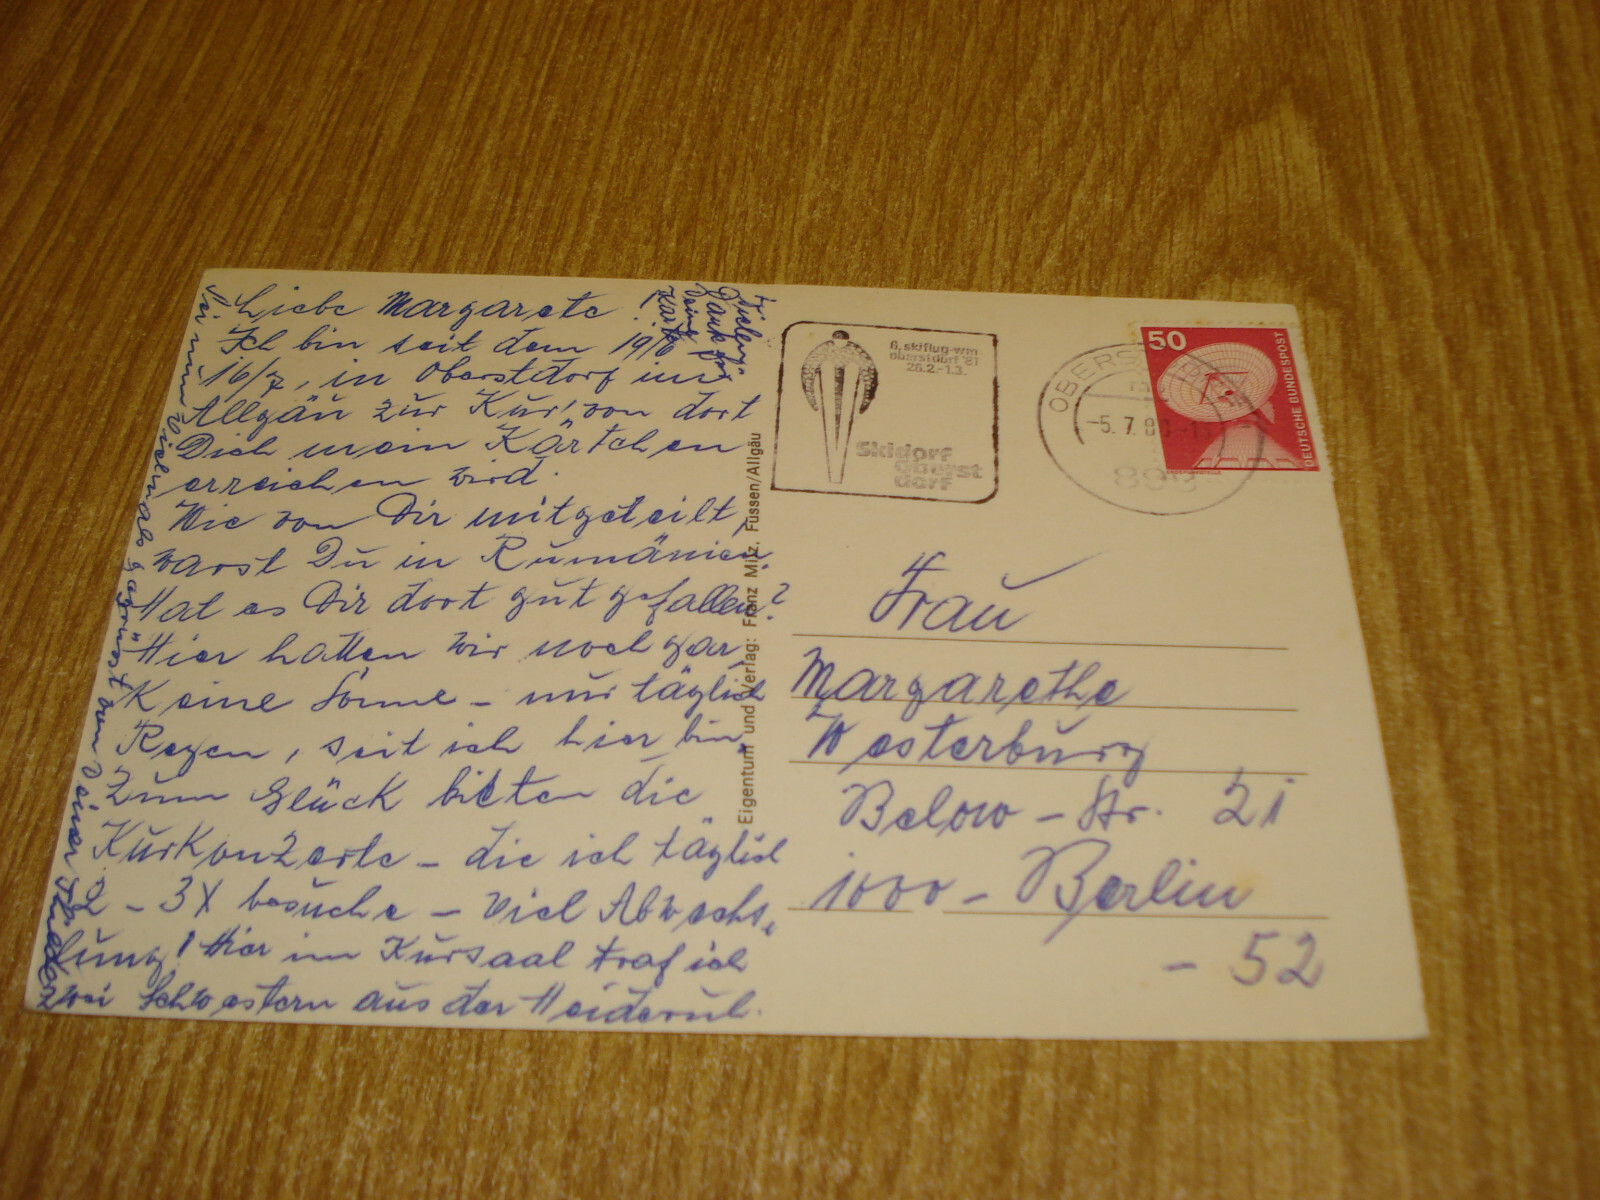 Liebe Margarete!
Vielen
Dank für
Deine
Karte
Ich bin seit dem 19/6
16/7, in Oberstdorf im
Allgäu zur Kur, von dort
Dich mein Kärtchen
erreichen wird.
Wie von Dir mitgeteilt,
warst Du in Rumänien.
Hat es Dir dort gut gefallen?
Hier hatten wir noch gar
Keine Sonne – nur täglich
Regen, seit ich hier bin.
Zum Glück bieten die
Kurkonzerte – die ich täglich
2 – 3 X besuche – viel Abwechs-
lung! Hier im Kursaal traf ich
zwei Schwestern aus der
Sei nun vielmals gegrüsst von Deiner
Eigentum und Verlag: Franz Milz, Füssen/Allgäu
6. skiflug-wm
oberstdorf '81
26.2.-1.3.
Skidorf
Oberst
dorf
OBERSTDORF
-5.7.80-
898
50
DEUTSCHE BUNDESPOST
Frau
Margarethe
Westerburg
Below – Str. 21
1000 – Berlin
– 52